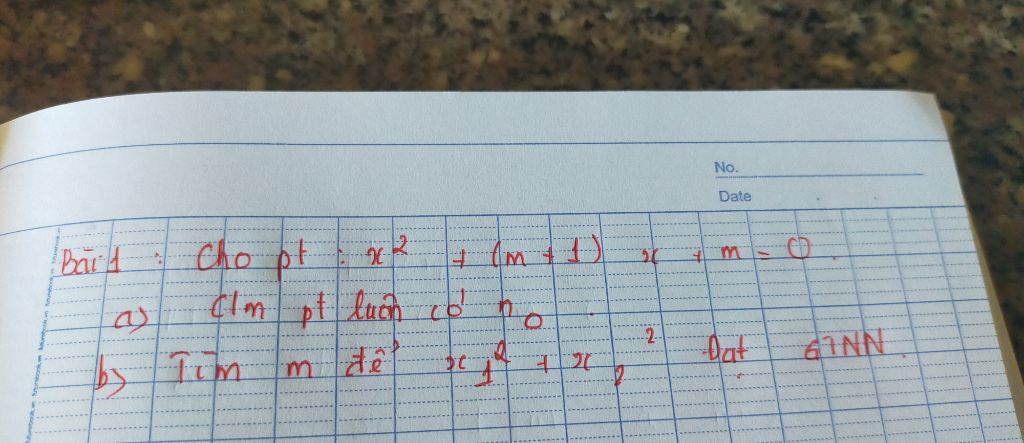 No.
Date
Bài 1 : Cho pt : x² + (m + 1) x + m = 0.
a) Cm pt luôn có n₀.
b) Tìm m để x₁² + x₂² Đạt GTNN.